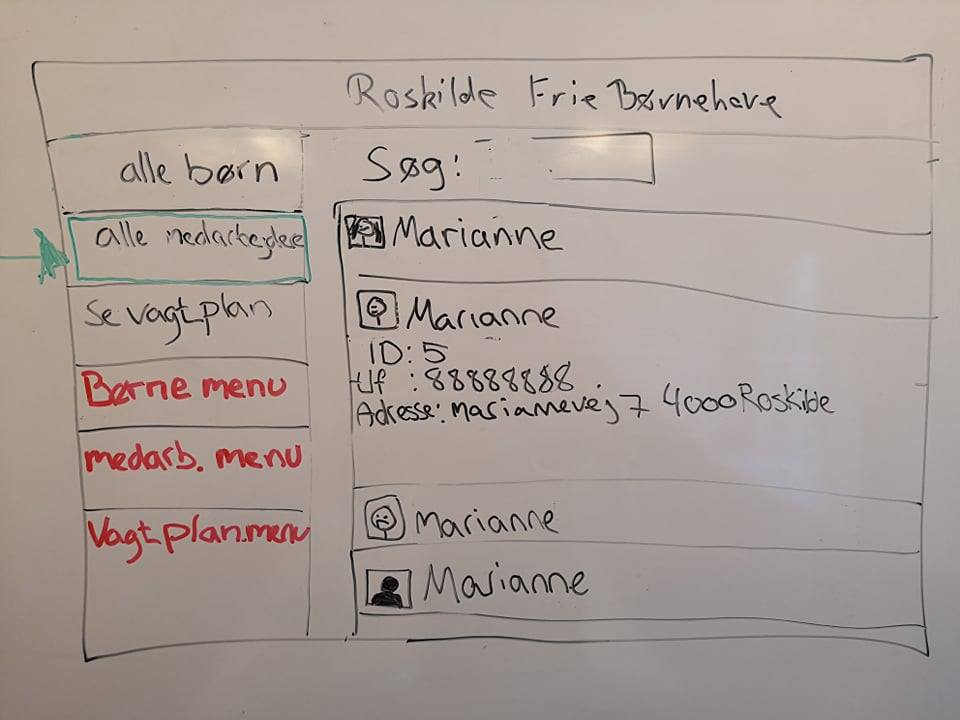 Roskilde Frie Børnehave
alle børn
alle medarbejdere
se vagtplan
Børne menu
medarb. menu
Vagtplan.menu
Søg:
Marianne
Marianne
ID: 5
tlf : 88888888
Adresse: mariannevej 7 4000 Roskilde
Marianne
Marianne